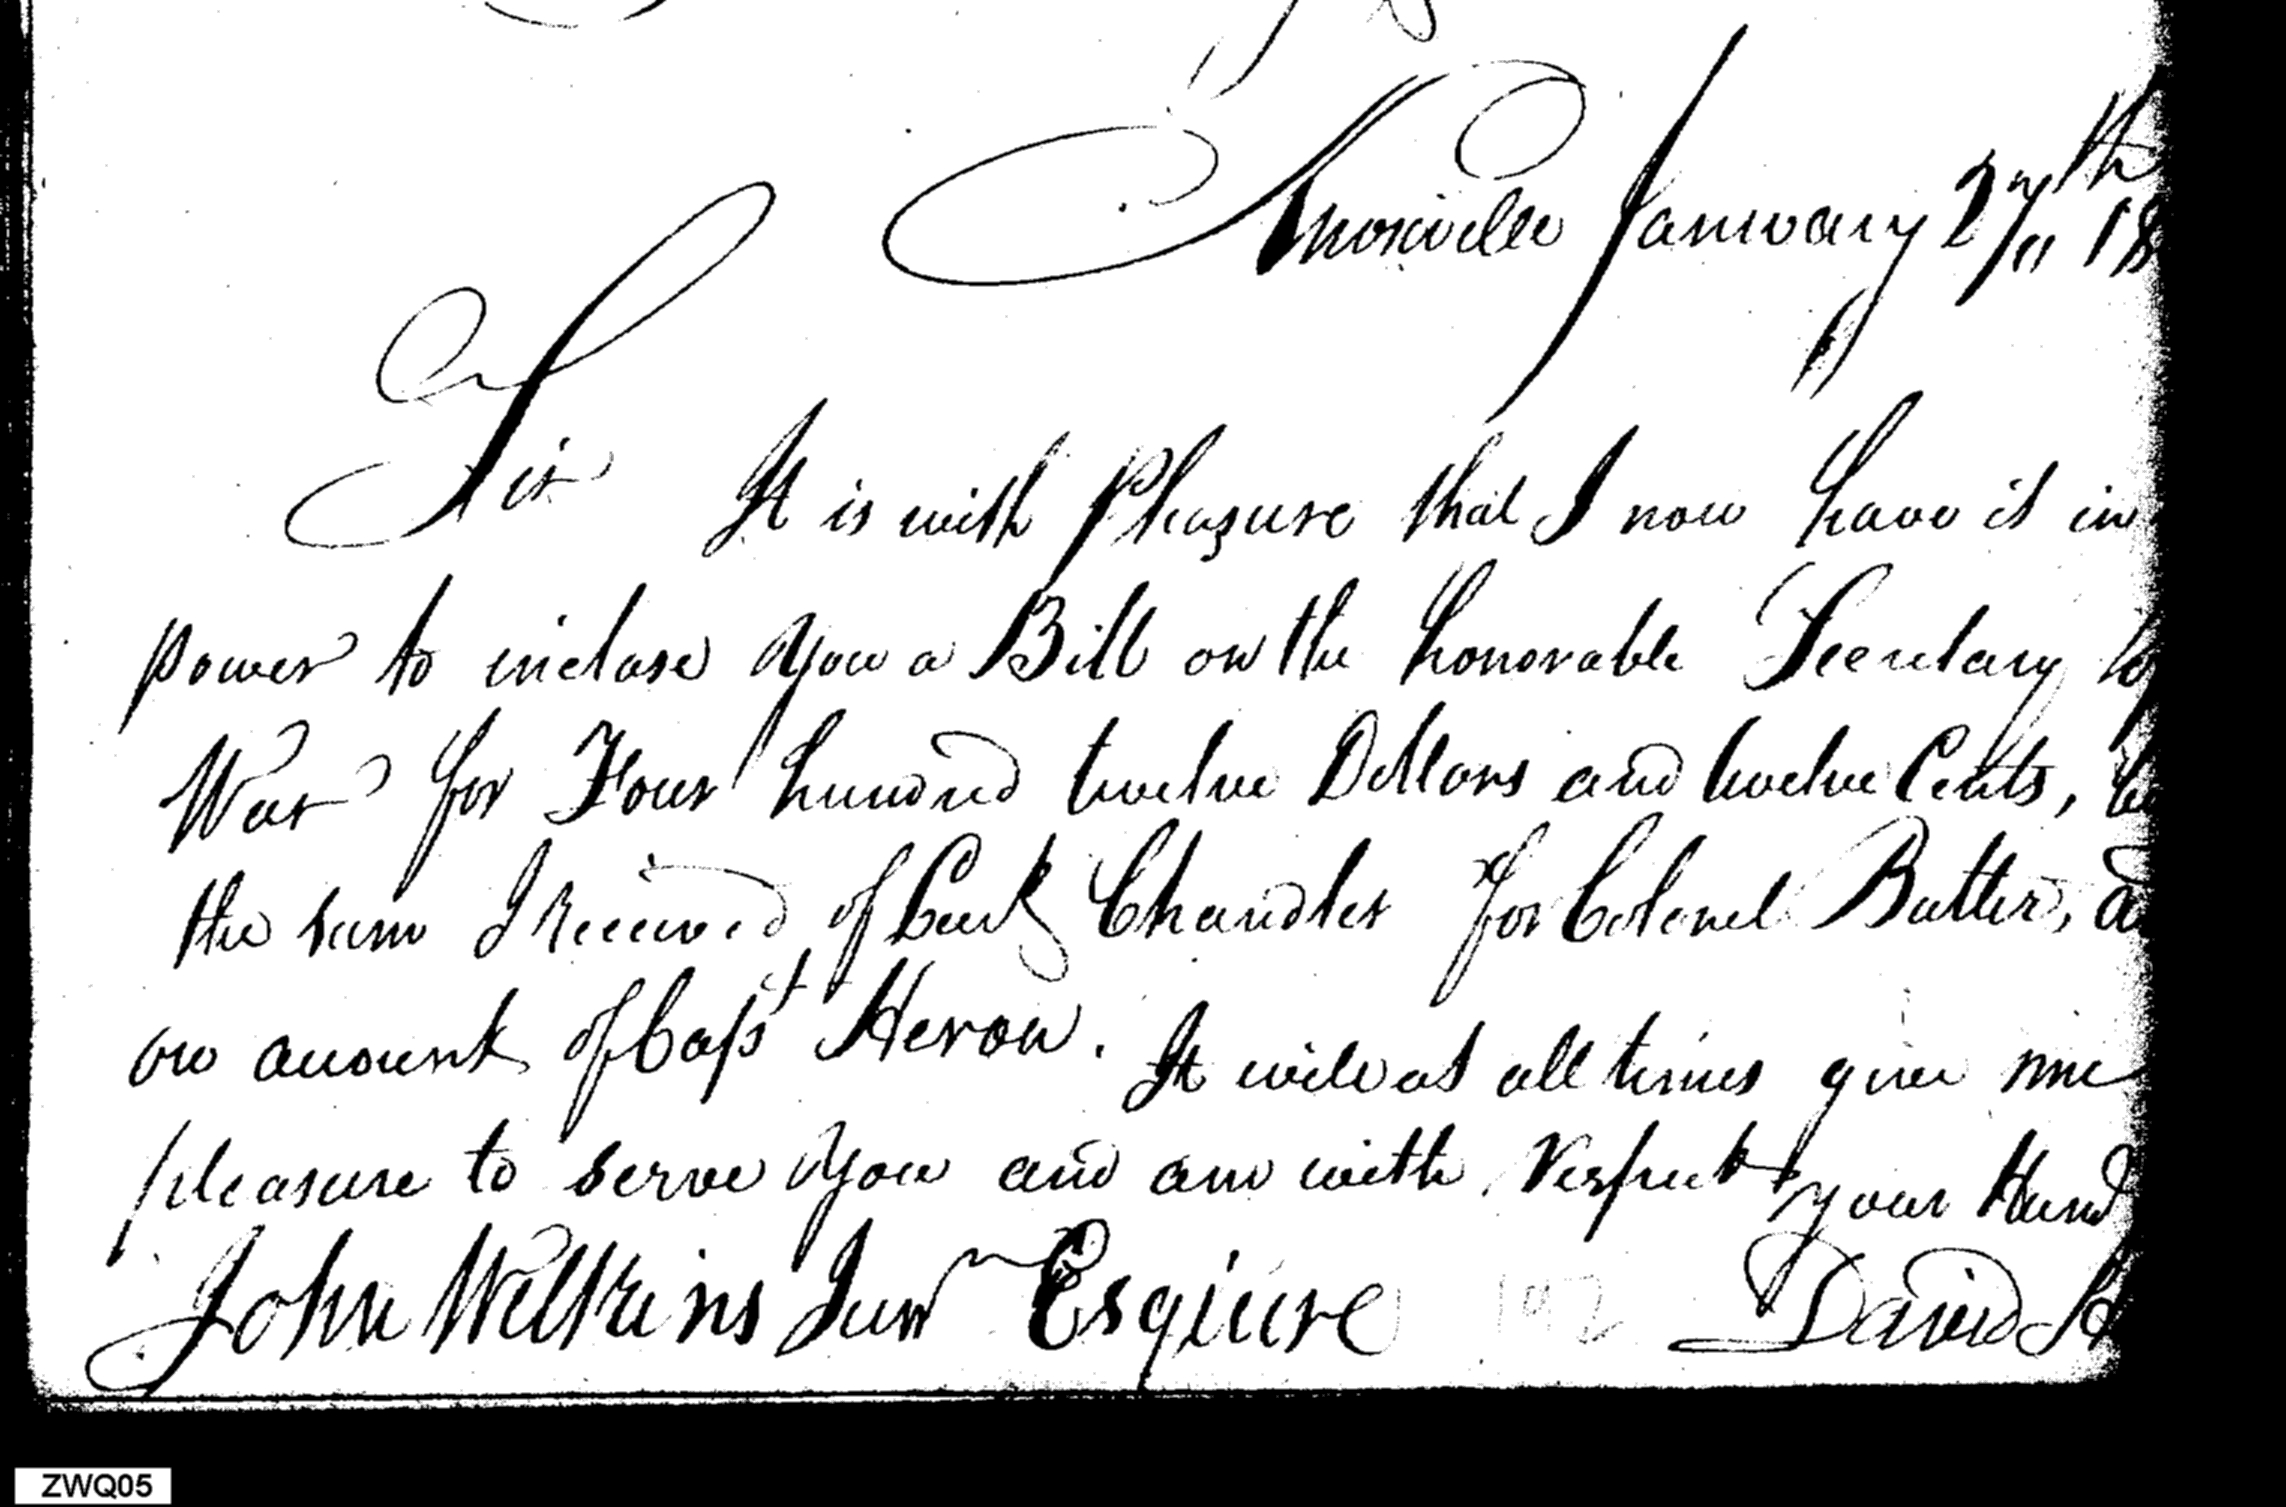 Knoxville January 27th 18
Sir It is with Pleasure that I now have it in
power to inclose you a Bill on the honorable Secretary of
War for Four hundred twelve Dollars and twelve Cents,
the sum I Received of Chandler for Colonel Butler,
on account of Capt Heron. It will at all times give me
pleasure to serve you and am with respect your Hum
John Wilkins Junr Esquire 192 David H
ZWQ05